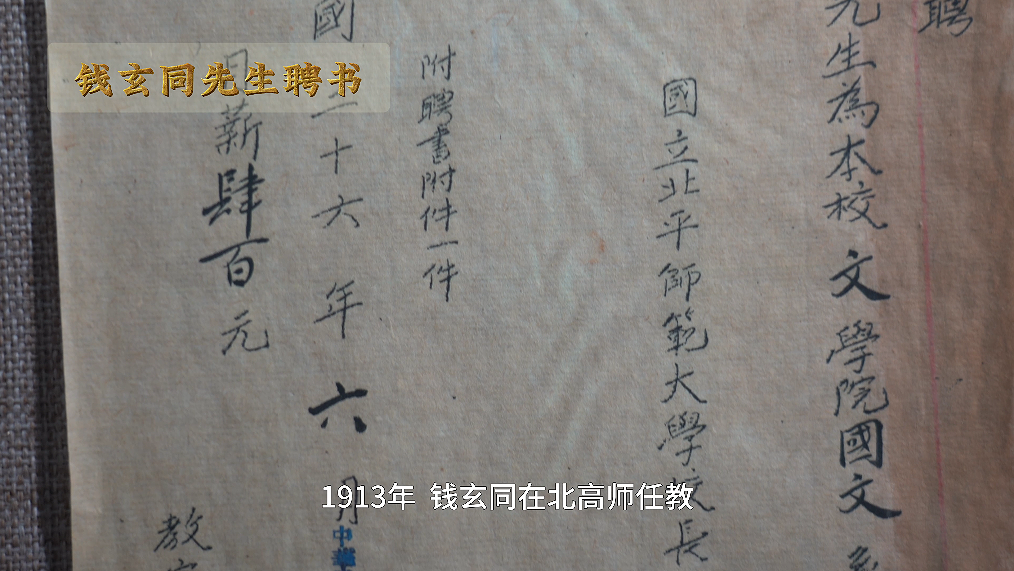 钱玄同先生聘书
聘
先生為本校文學院國文系
國立北平師範大學校長
附聘書附件一件
國二十六年六月
中華
月薪肆百元
教
1913年 钱玄同在北高师任教